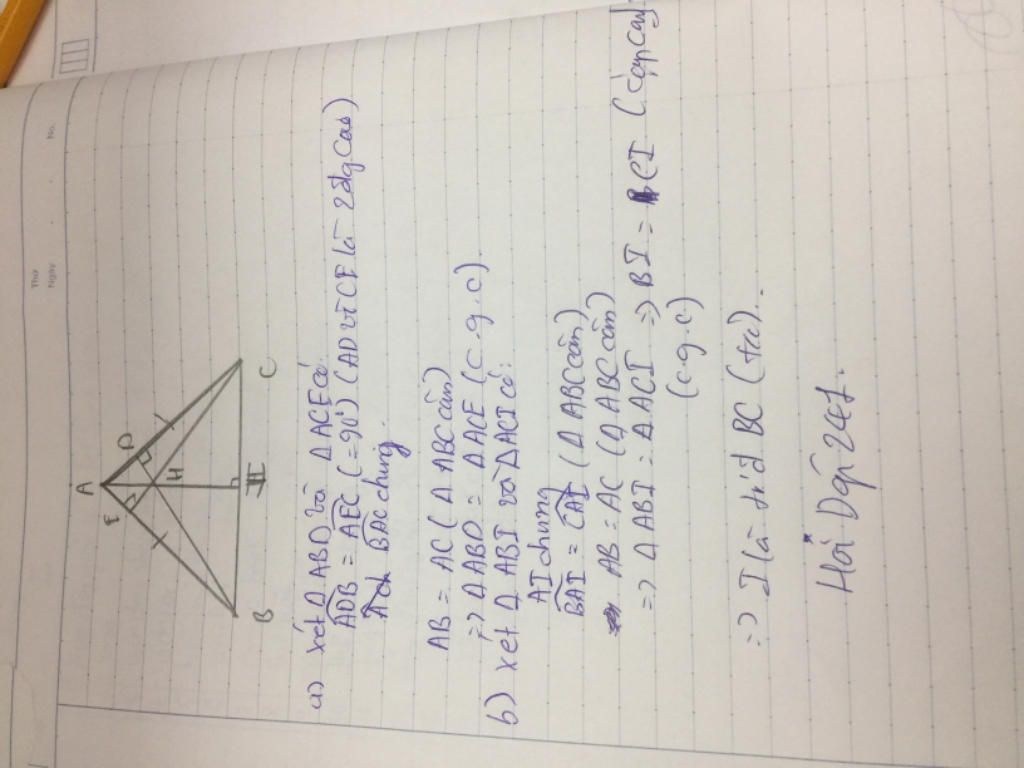 Thứ
Ngày
No.
A
E
D
H
B
I
C
a) xét Δ ABD và Δ ACE có:
ADB = AEC (= 90°) (AD vì CE là 2 đg cao)
BAC chung.
AB = AC (Δ ABC cân)
=> Δ ABD = Δ ACE (c.g.c).
b) xet Δ ABI và Δ ACI có:
AI chung
BAI = CAI (Δ ABC cân)
AB = AC (Δ ABC cân)
=> Δ ABI = Δ ACI => BI = CI
(c.g.c)
=> I là tr'đ BC